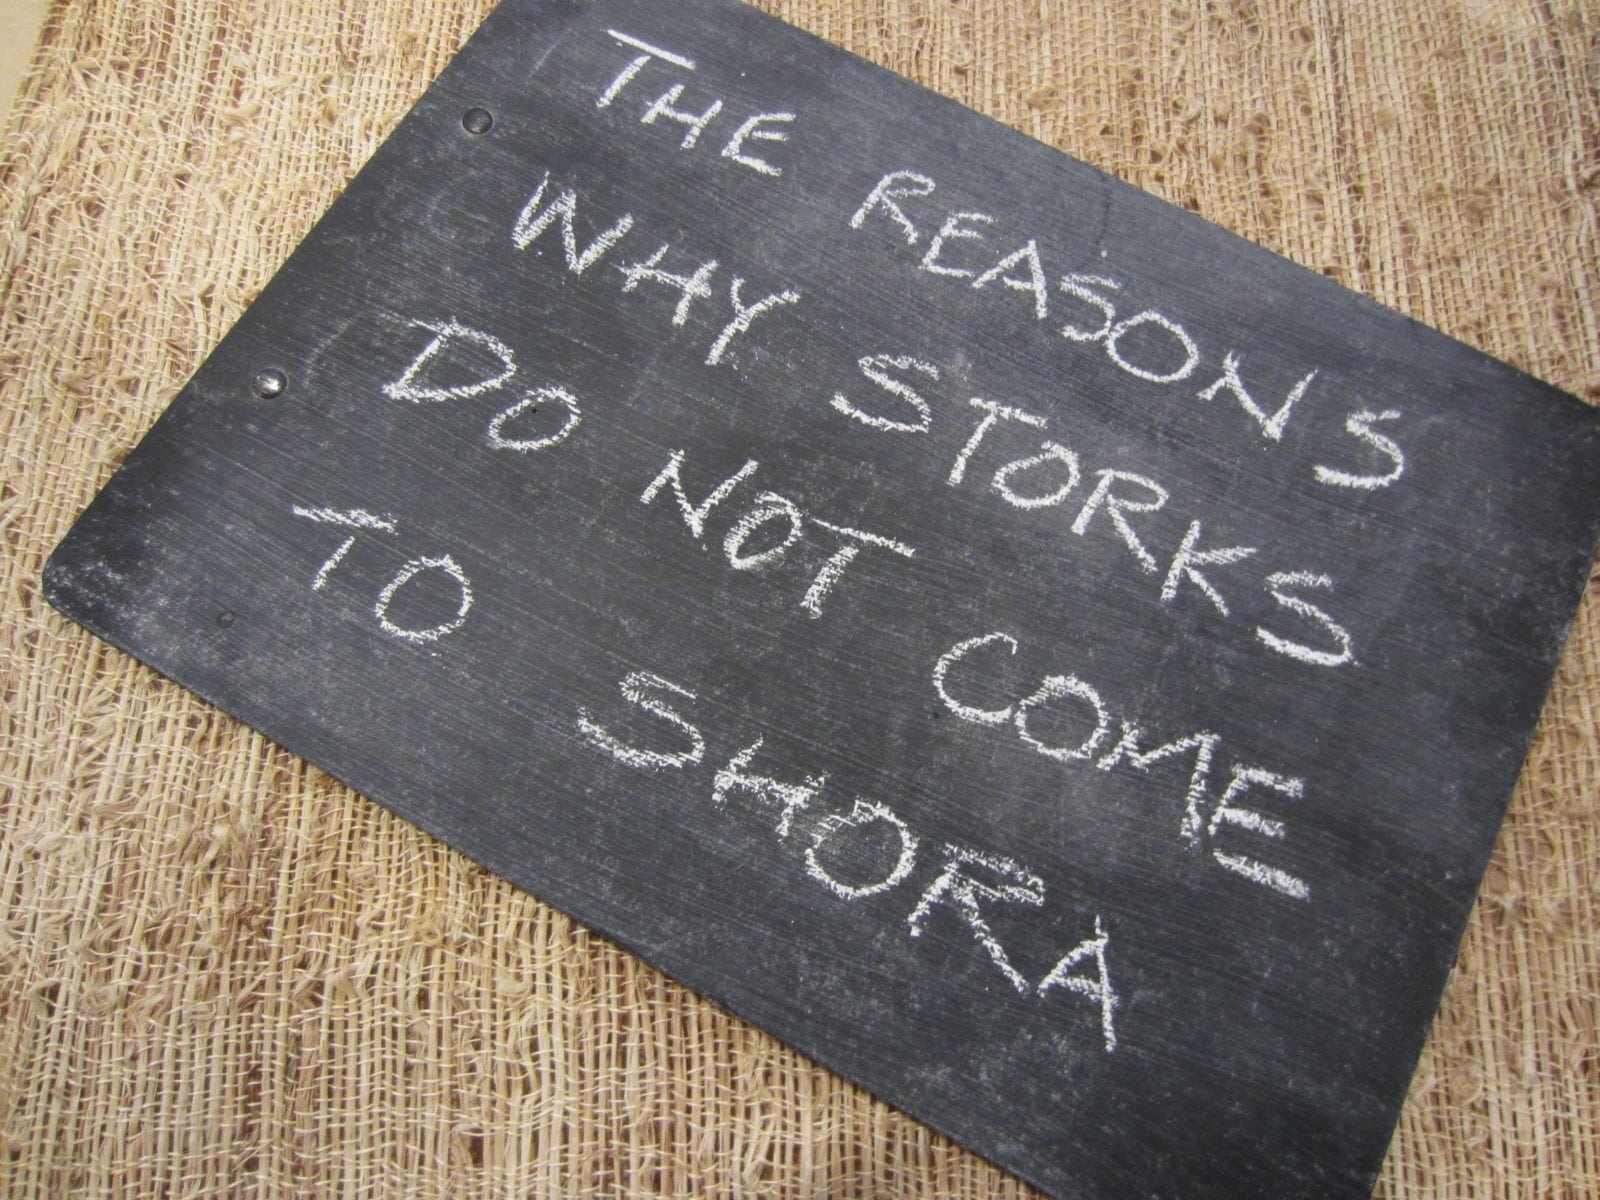 THE REASONS
WHY STORKS
DO NOT COME
TO SHORA